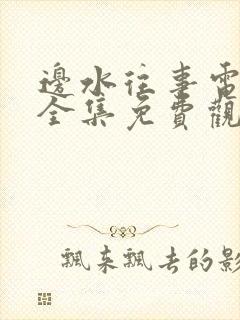 邊水往事電
全集免費觀
飄來飄去的影